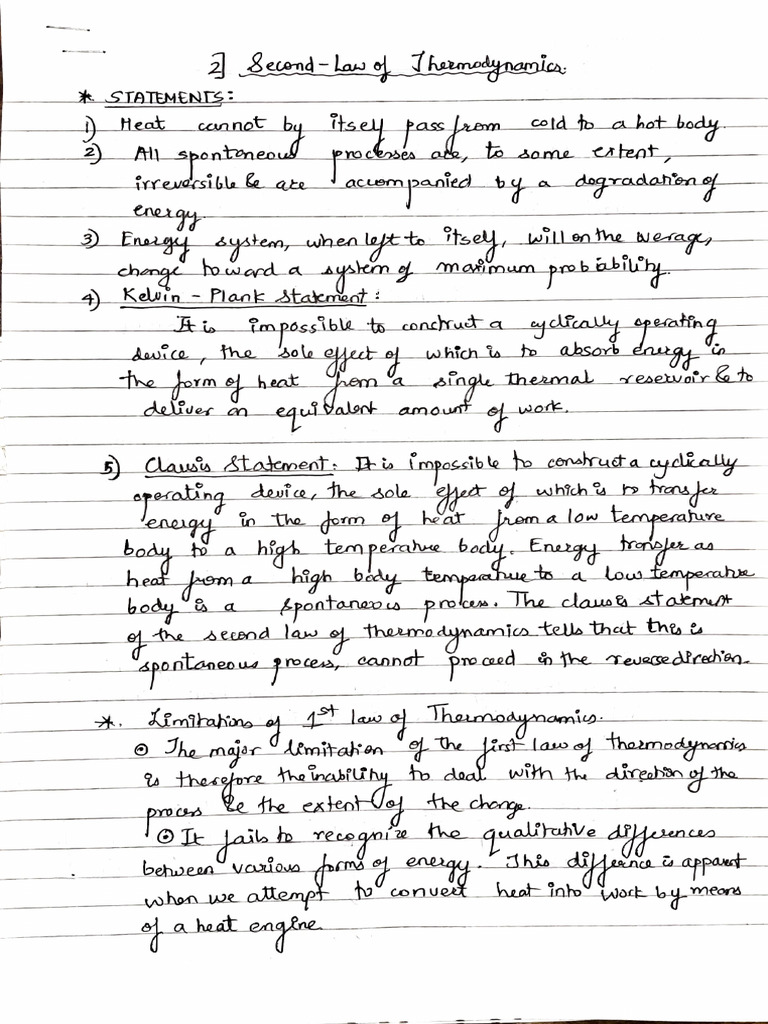 2] Second-Law of Thermodynamics.
* STATEMENTS:
1) Heat cannot by itself pass from cold to a hot body.
2) All spontaneous processes are, to some extent,
irreversible & are accompanied by a degradation of
energy.
3) Energy system, when left to itself, will on the average,
change toward a system of maximum probability.
4) Kelvin - Plank Statement:
It is impossible to construct a cyclically operating
device, the sole effect of which is to absorb energy in
the form of heat from a single thermal reservoir & to
deliver an equivalent amount of work.
5) Clausis Statement: It is impossible to construct a cyclically
operating device, the sole effect of which is to transfer
energy in the form of heat from a low temperature
body to a high temperature body. Energy transfer as
heat from a high body temperature to a low temperature
body is a spontaneous process. The clausis statement
of the second law of thermodynamics tells that this is
spontaneous process, cannot proceed in the reverse direction.
*. Limitations of 1st law of Thermodynamics.
⊙ The major limitation of the first law of thermodynamics
is therefore the inability to deal with the direction of the
process & the extent of the change.
⊙ It fails to recognize the qualitative differences
between various forms of energy. This differnce is apparent
when we attempt to convert heat into work by means
of a heat engine.